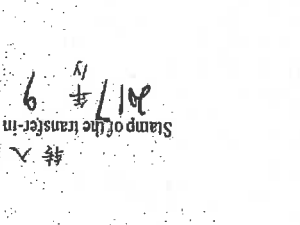 转入
Stamp of the transfer-in
2017年